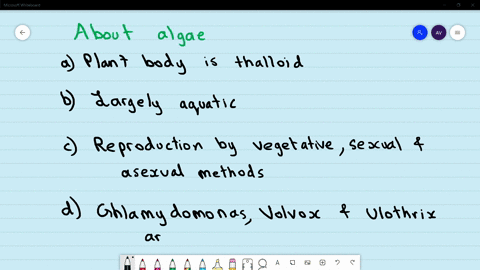 Microsoft Whiteboard
About algae
a) Plant body is thalloid
b) Largely aquatic
c) Reproduction by vegetative, sexual &
asexual methods
d) Ghlamydomonas, Volvox & Ulothrix
ar
AV